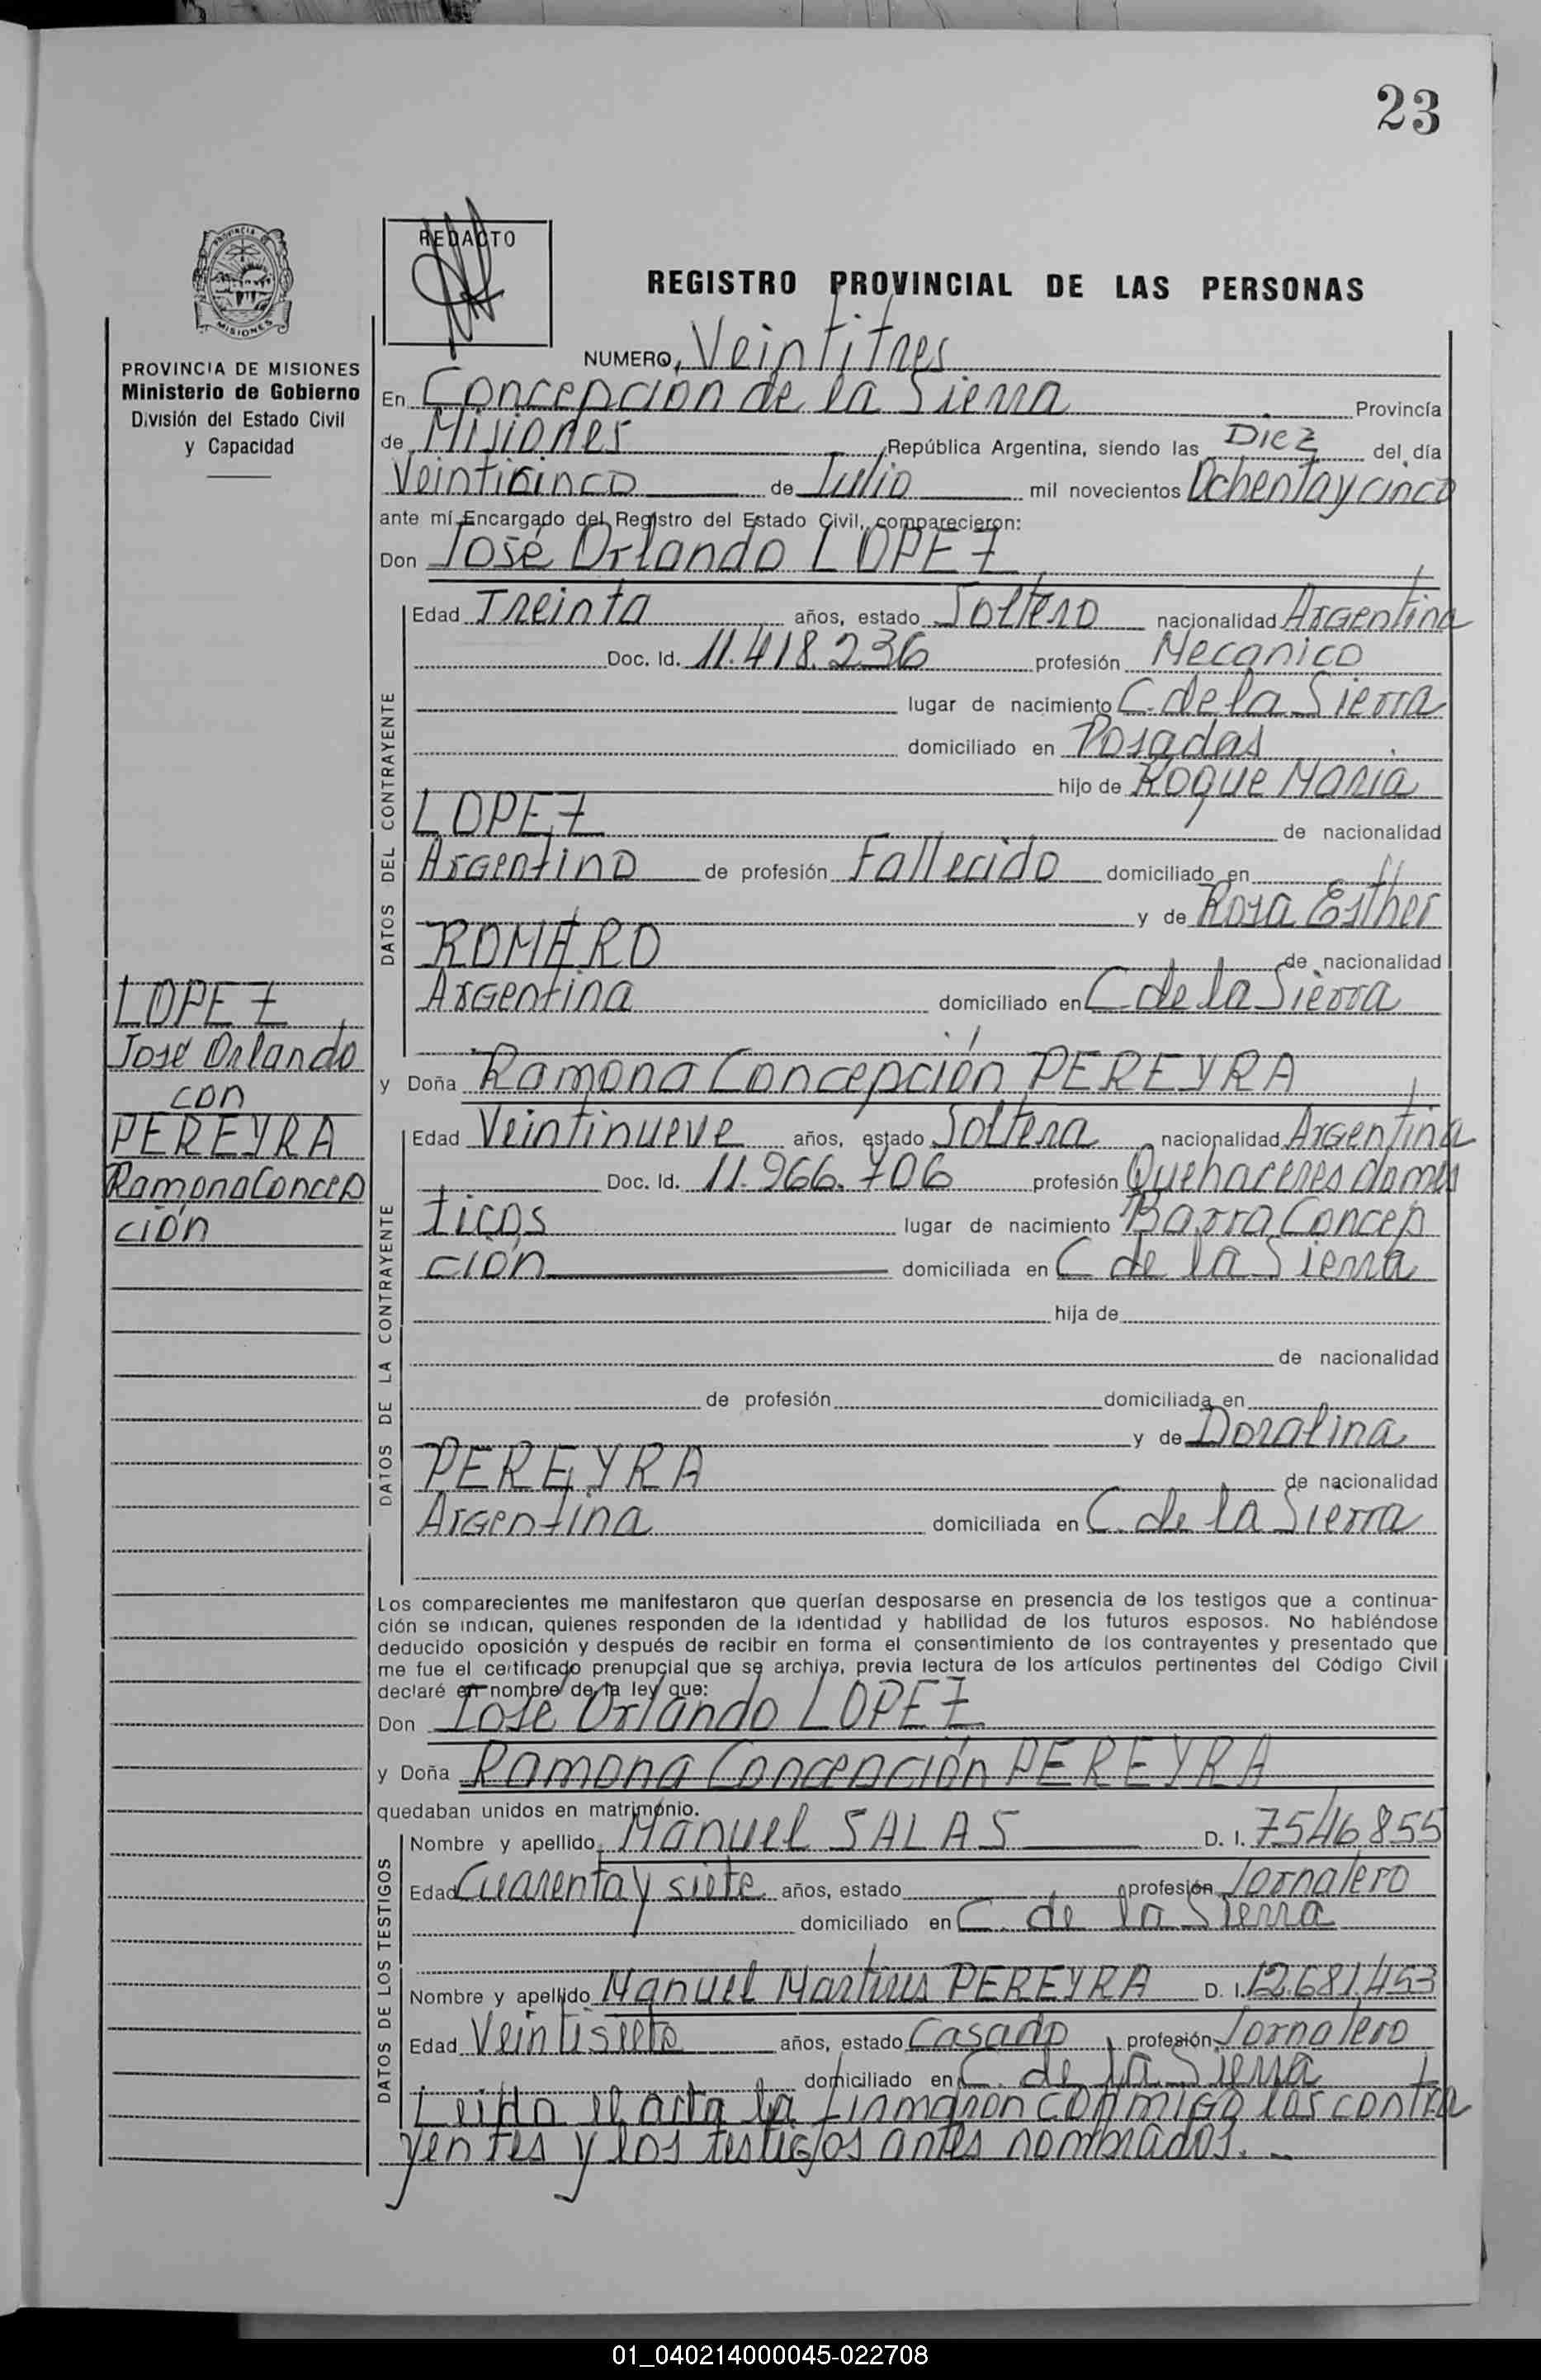 23
REDACTO
REGISTRO PROVINCIAL DE LAS PERSONAS
PROVINCIA DE MISIONES
Ministerio de Gobierno
División del Estado Civil
y Capacidad
NUMERO Veintitres
En Concepción de la Sierra Provincia
de Misiones República Argentina, siendo las Diez del día
Veinticinco de Julio mil novecientos Ochenta y cinco
ante mí Encargado del Registro del Estado Civil, comparecieron:
Don José Orlando LOPEZ
DATOS DEL CONTRAYENTE
Edad Treinta años, estado Soltero nacionalidad Argentina
Doc. Id. 11.418.236 profesión Mecanico
lugar de nacimiento C. de la Sierra
domiciliado en Posadas
hijo de Roque Maria
LOPEZ de nacionalidad
Argentino de profesión Fallecido domiciliado en
y de Rosa Esther
ROMERO de nacionalidad
Argentina domiciliado en C de la Sierra
LOPEZ
José Orlando
con
PEREYRA
Ramona Concep
ción
y Doña Ramona Concepción PEREYRA
DATOS DE LA CONTRAYENTE
Edad Veintinueve años, estado Soltera nacionalidad Argentina
Doc. Id. 11.966.706 profesión Quehaceres domes
ticos lugar de nacimiento Barra Concep
ción domiciliada en C de la Sierra
hija de
de nacionalidad
de profesión domiciliada en
y de Doralina
PEREYRA de nacionalidad
Argentina domiciliada en C. de la Sierra
Los comparecientes me manifestaron que querían desposarse en presencia de los testigos que a continua-
ción se indican, quienes responden de la identidad y habilidad de los futuros esposos. No habiéndose
deducido oposición y después de recibir en forma el consentimiento de los contrayentes y presentado que
me fue el certificado prenupcial que se archiva, previa lectura de los artículos pertinentes del Código Civil
declaré en nombre de la ley que:
Don José Orlando LOPEZ
y Doña Ramona Concepción PEREYRA
quedaban unidos en matrimonio.
DATOS DE LOS TESTIGOS
Nombre y apellido Manuel SALAS D. I. 7546855
Edad Cuarenta y siete años, estado profesión Jornalero
domiciliado en C. de la Sierra
Nombre y apellido Manuel Martires PEREYRA D. I. 12.681.453
Edad Veintisiete años, estado Casado profesión Jornalero
domiciliado en C. de la Sierra
Leida el acta la firmaron conmigo los contra
yentes y los testigos antes nombrados.
01_040214000045-022708